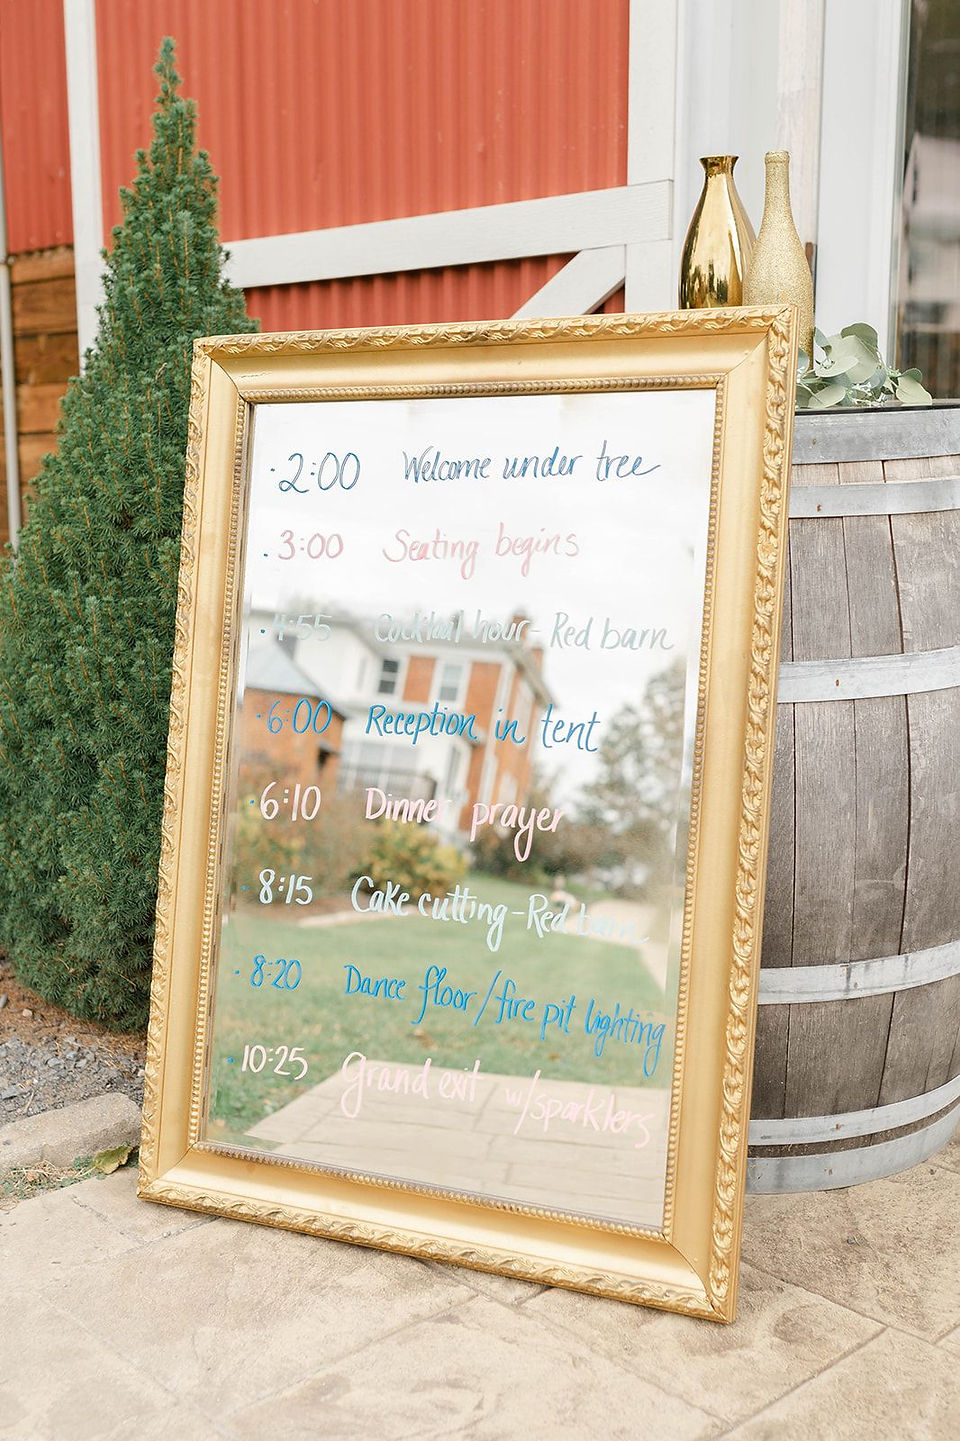 · 2:00 Welcome under tree
· 3:00 Seating begins
· 4:55 Cocktail hour - Red barn
· 6:00 Reception in tent
· 6:10 Dinner prayer
· 8:15 Cake cutting - Red barn
· 8:20 Dance floor/fire pit lighting
· 10:25 Grand exit w/sparklers